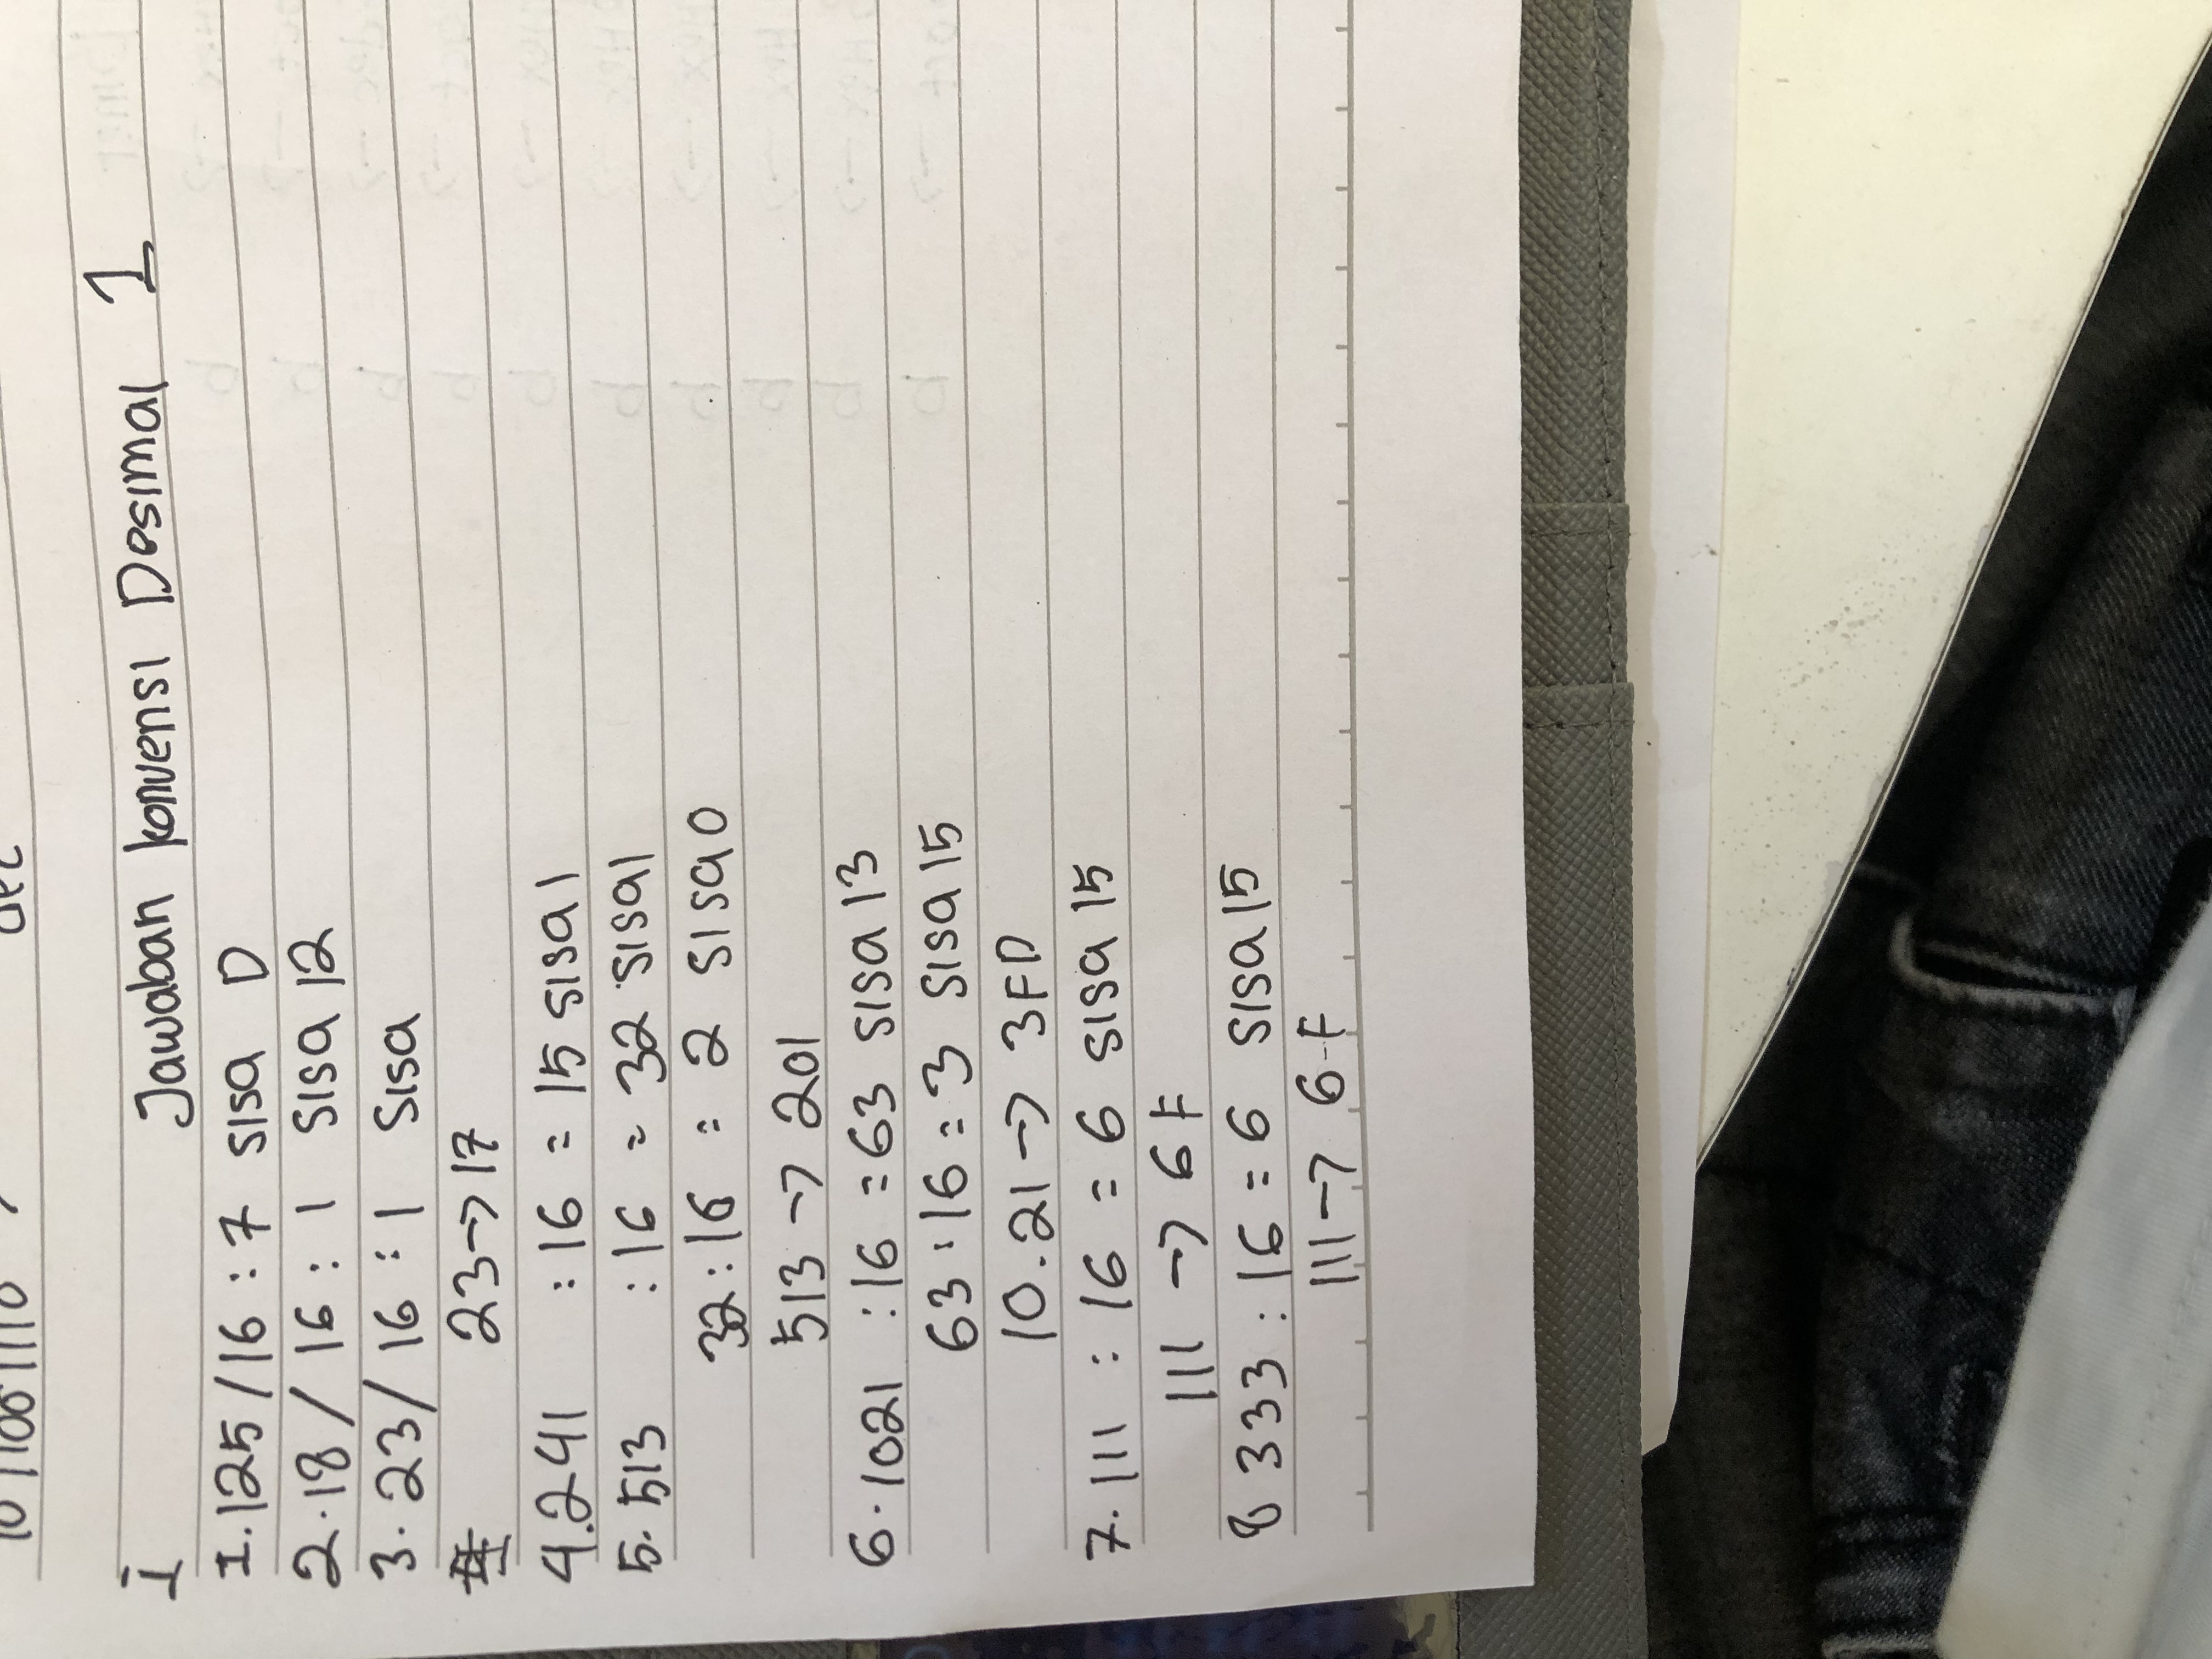 1011001110 dec
I Jawaban konvensi Desimal 1
I. 125 / 16 : 7 sisa D
2. 18 / 16 : 1 sisa 12
3. 23 / 16 : 1 sisa
23 → 17
4. 241 : 16 = 15 sisa 1
5. 513 : 16 = 32 sisa 1
32 : 16 = 2 sisa 0
513 → 201
6. 1021 : 16 = 63 sisa 13
63 : 16 = 3 sisa 15
10.21 → 3FD
7. 111 : 16 = 6 sisa 15
111 → 6F
8 333 : 16 = 6 sisa 15
111 → 6-F